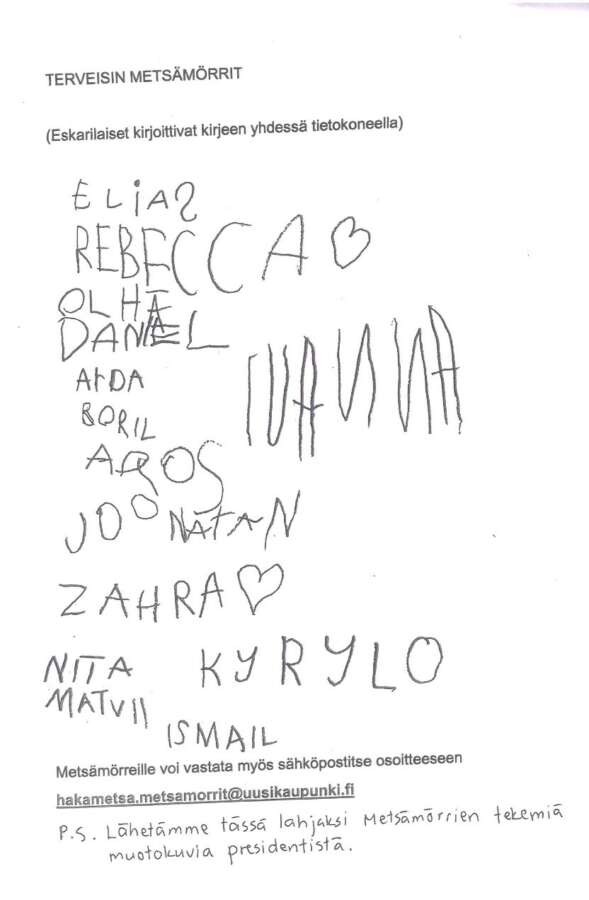 TERVEISIN METSÄMÖRRIT
(Eskarilaiset kirjoittivat kirjeen yhdessä tietokoneella)
ELiAS
REBECCA
OLHA
DANIEL
IVANNA
AIDA
BORIL
AROS
JOONATAN
ZAHRA
NITA
KYRYLO
MATVII
ISMAIL
Metsämörreille voi vastata myös sähköpostitse osoitteeseen
hakametsa.metsamorrit@uusikaupunki.fi
P.S. Lähetämme tässä lahjaksi Metsämörrien tekemiä
muotokuvia presidentistä.